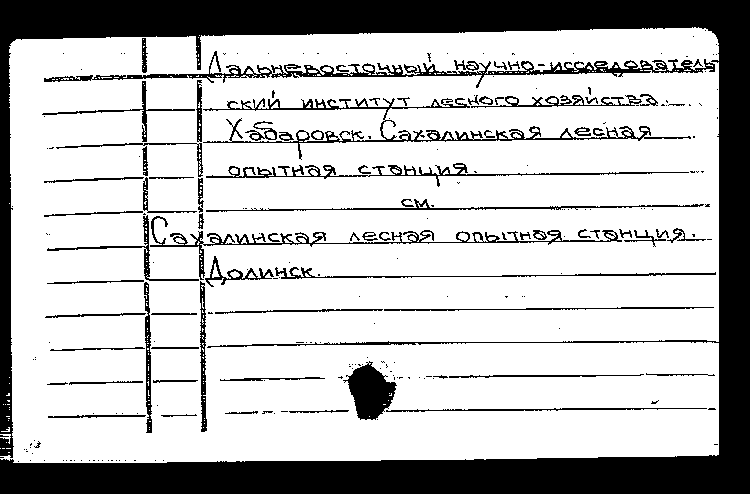 Дальневосточный научно-исследователь
ский институт лесного хозяйства.
Хабаровск. Сахалинская лесная
опытная станция.
см.
Сахалинская лесная опытная станция.
Долинск.